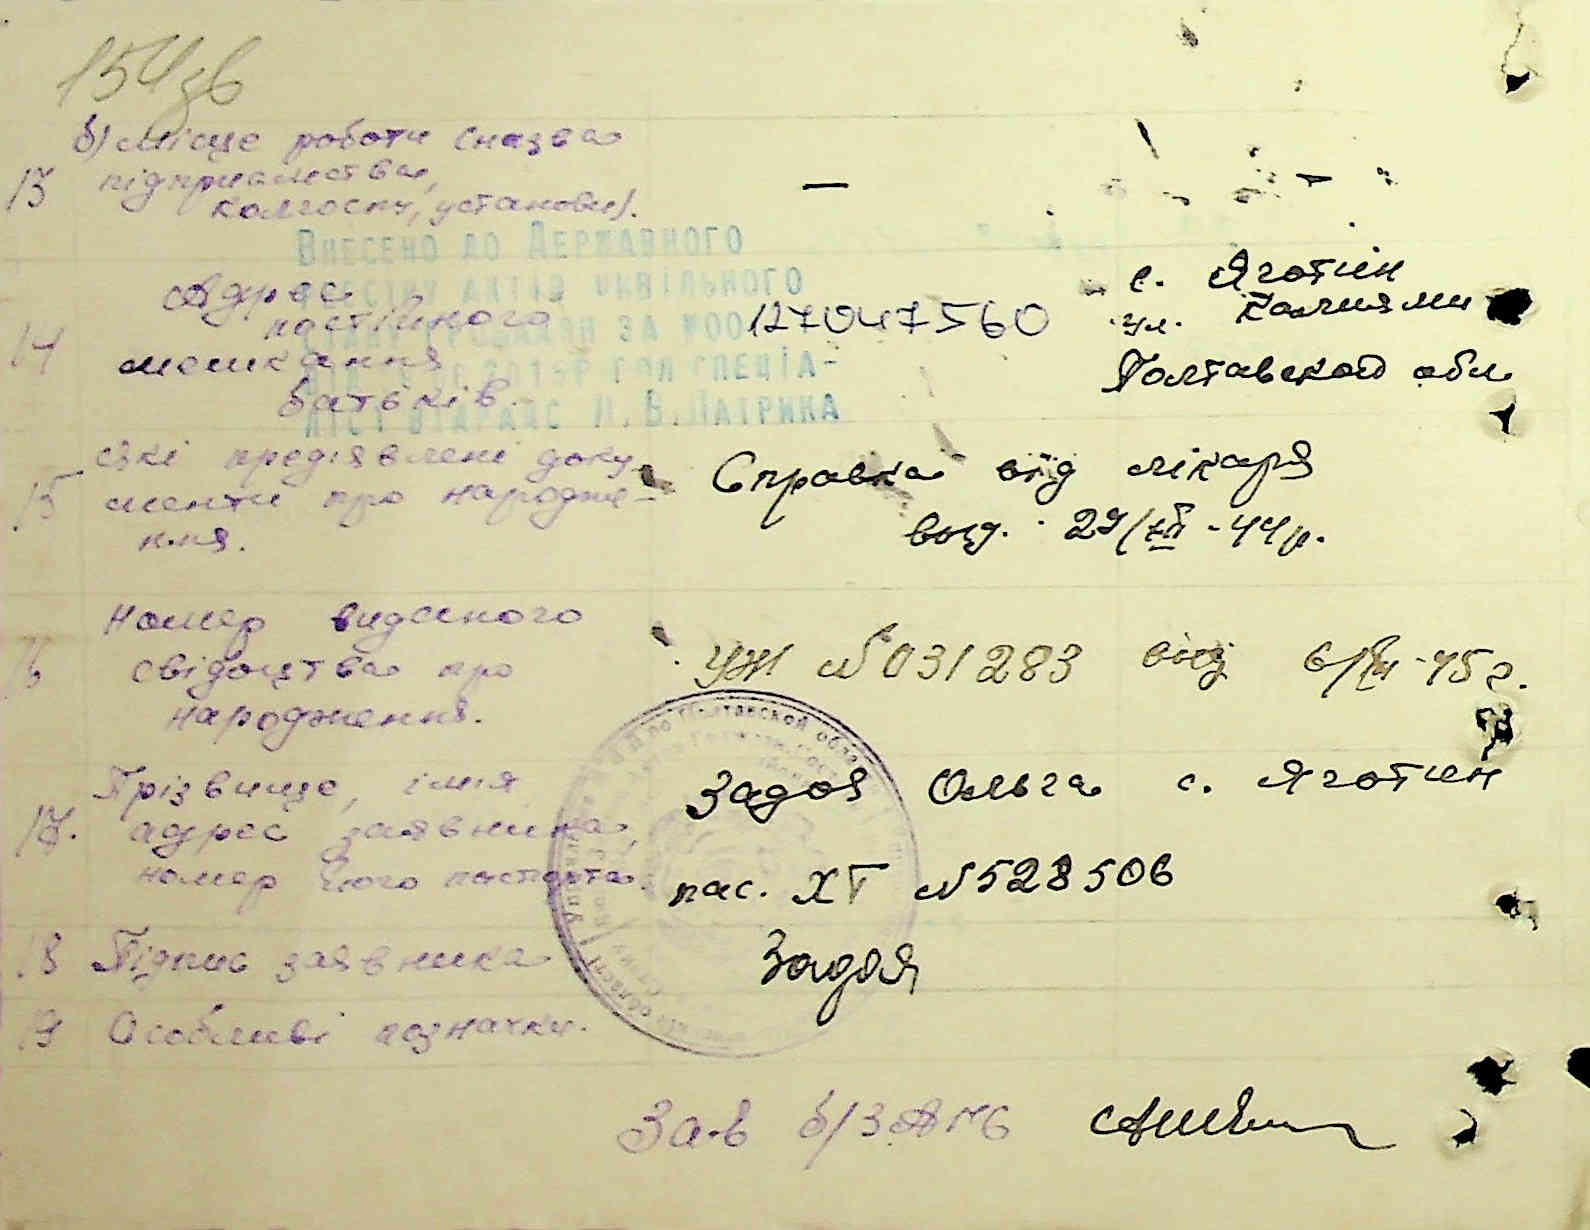 154зв
б) місце роботи (назва
13 підприємства,
колгоспу, установи).
—
ВНЕСЕНО ДО ДЕРЖАВНОГО
РЕЄСТРУ АКТІВ ЦИВІЛЬНОГО
СТАНУ ГРОМАДЯН ЗА №00127047560
СПЕЦІА-
ЛІСТ В. ПАТРИКА
14 Адрес
постійного
мешкання
батьків.
с. Яготин
ул.
Полтавской обл
15 Які предіявлені доку
менти про народже-
ння.
Справка від лікаря
вид. 29/XII-44р.
16 Номер виданого
свідоцтва про
народження.
УЖ №031283 від
45г.
17. Прізвище, імія
адрес заявника,
номер його паспорта.
Задоя Ольга с. Яготин
пас. XГ №528506
18 Підпис заявника
Задоя
19 Особливі позначки.
Зав б/ЗАГС